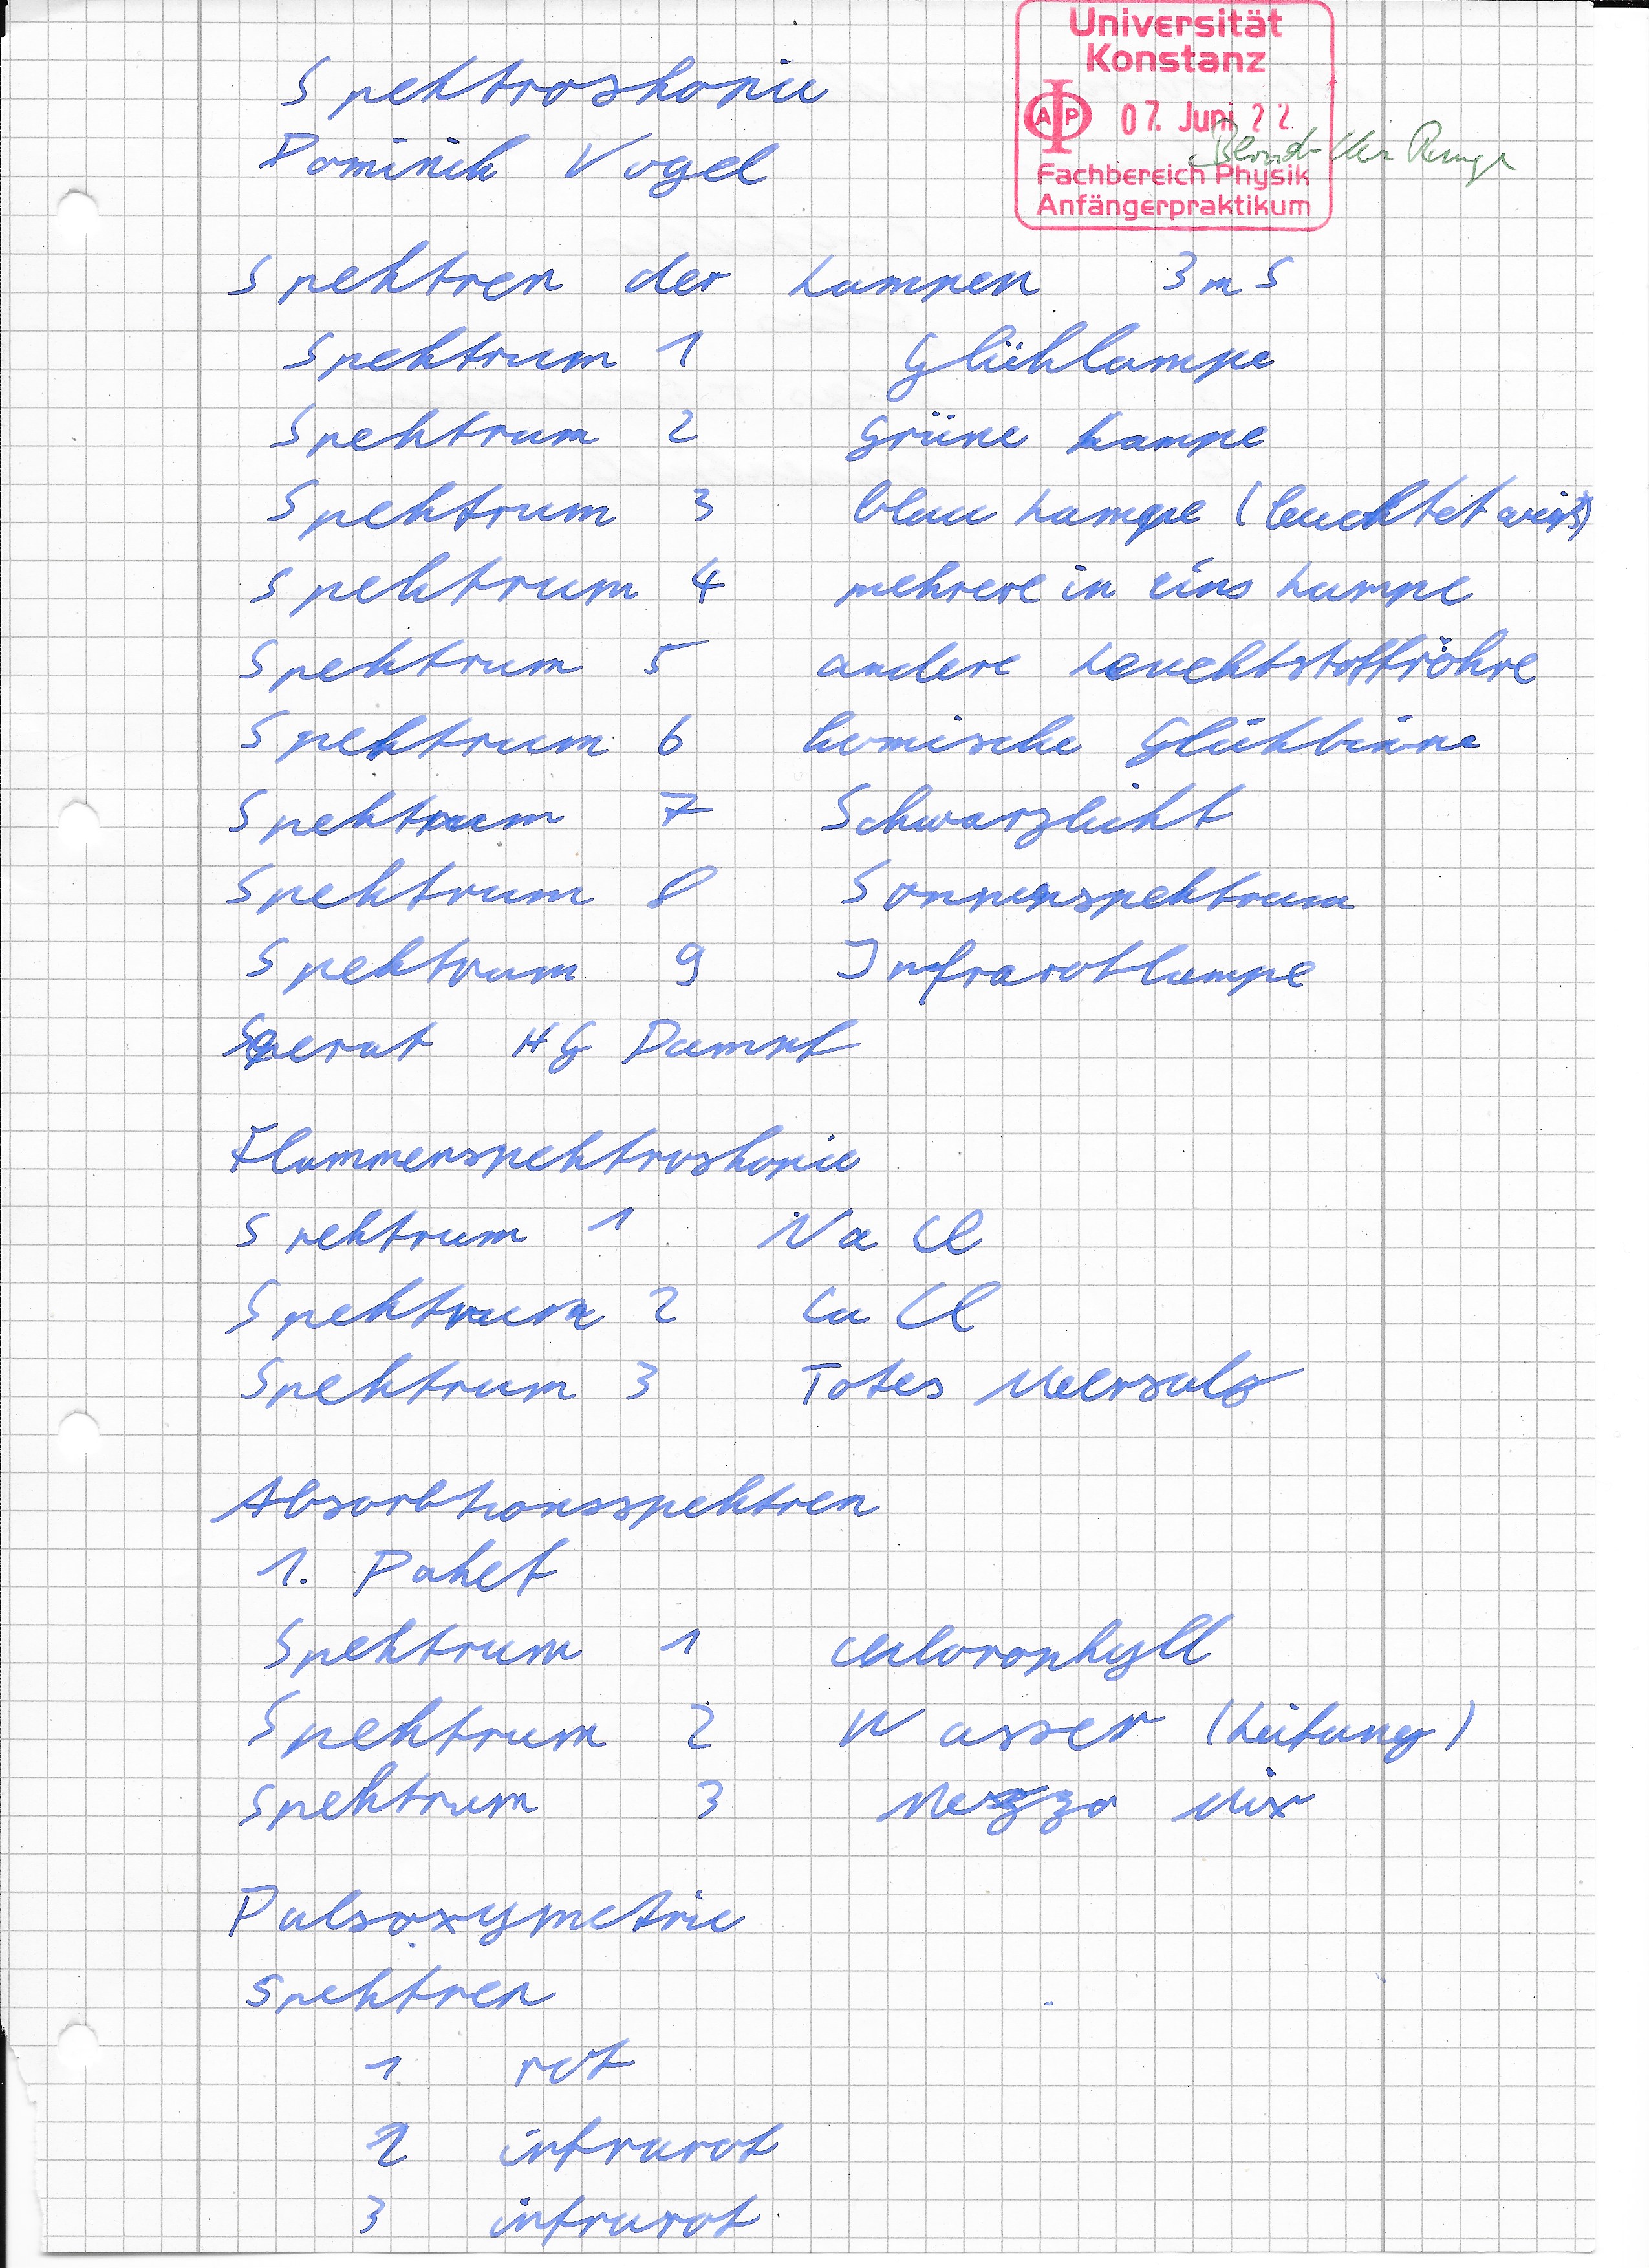 Universität
Konstanz
AP 07. Juni 22
Fachbereich Physik
Anfängerpraktikum
Spektroskopie
Dominik Vogel
Spektren der Lampen 3 mS
Spektrum 1 Glühlampe
Spektrum 2 Grüne Lampe
Spektrum 3 blau Lampe (leuchtet weiß)
Spektrum 4 mehrere in eins Lampe
Spektrum 5 andere Leuchtstoffröhre
Spektrum 6 komische Glühbirne
Spektrum 7 Schwarzlicht
Spektrum 8 Sonnenspektrum
Spektrum 9 Infrarotlampe
Seperat HG Dampf
Flammenspektroskopie
Spektrum 1 Na Cl
Spektrum 2 Cu Cl
Spektrum 3 Totes Meersalz
Absorbtionsspektren
1. Paket
Spektrum 1 Chlorophyll
Spektrum 2 Wasser (Leitung)
Spektrum 3 Mezzo Mix
Pulsoxymetrie
Spektren
1 rot
2 infrarot
3 infrarot